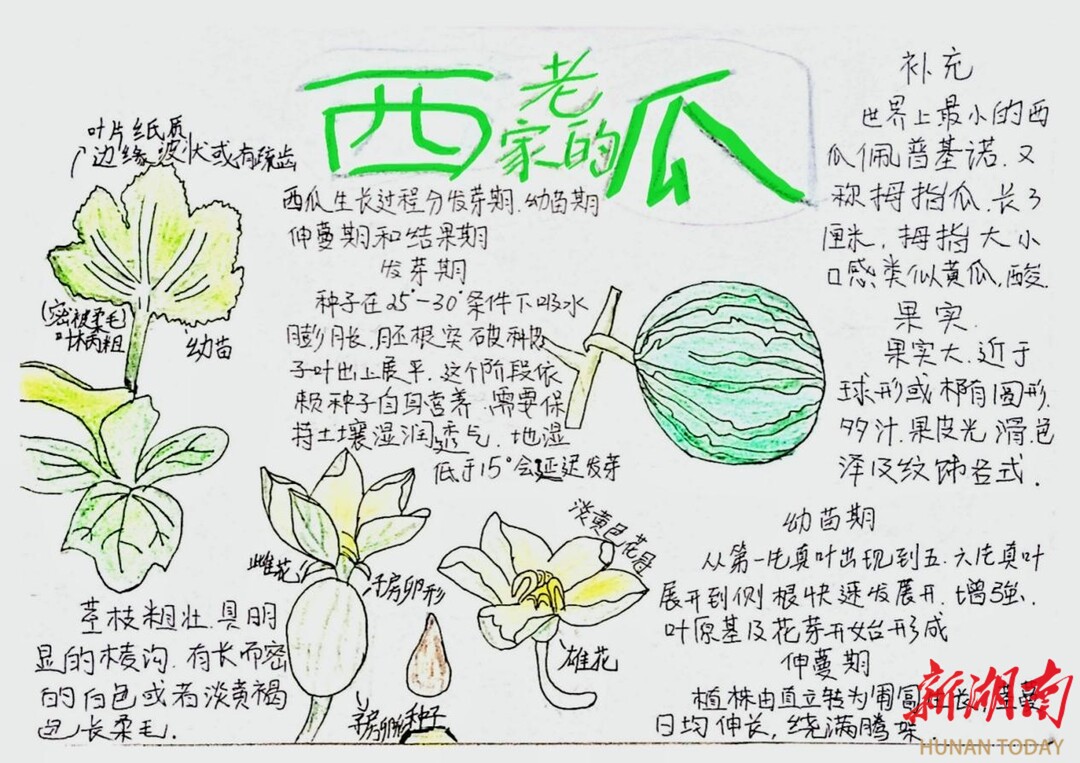 老家的西瓜
叶片纸质
边缘波状或有疏齿
(密被柔毛)
叶柄粗
幼苗
西瓜生长过程分发芽期.幼苗期
伸蔓期和结果期
发芽期
种子在25°-30°条件下吸水
膨胀.胚根突破种皮
子叶出土展平.这个阶段依
赖种子自身营养.需要保
持土壤湿润透气.地湿
低于15°会延迟发芽
补充
世界上最小的西
瓜佩普基诺.又
称拇指瓜.长3
厘米,拇指大小
口感类似黄瓜,酸.
果实.
果实大.近于
球形或椭圆形.
多汁.果皮光滑.色
泽及纹饰各式.
雌花
子房卵形
淡黄色花冠
雄花
子房卵形
种子
茎枝粗壮.具明
显的棱沟.有长而密
的白色或者淡黄褐
色长柔毛.
幼苗期
从第一片真叶出现到五.六片真叶
展开到侧根快速发展开.增强.
叶原基及花芽开始形成
伸蔓期
植株由直立转为匍匐
日均伸长,绕满腾架.
新湖南
HUNAN TODAY